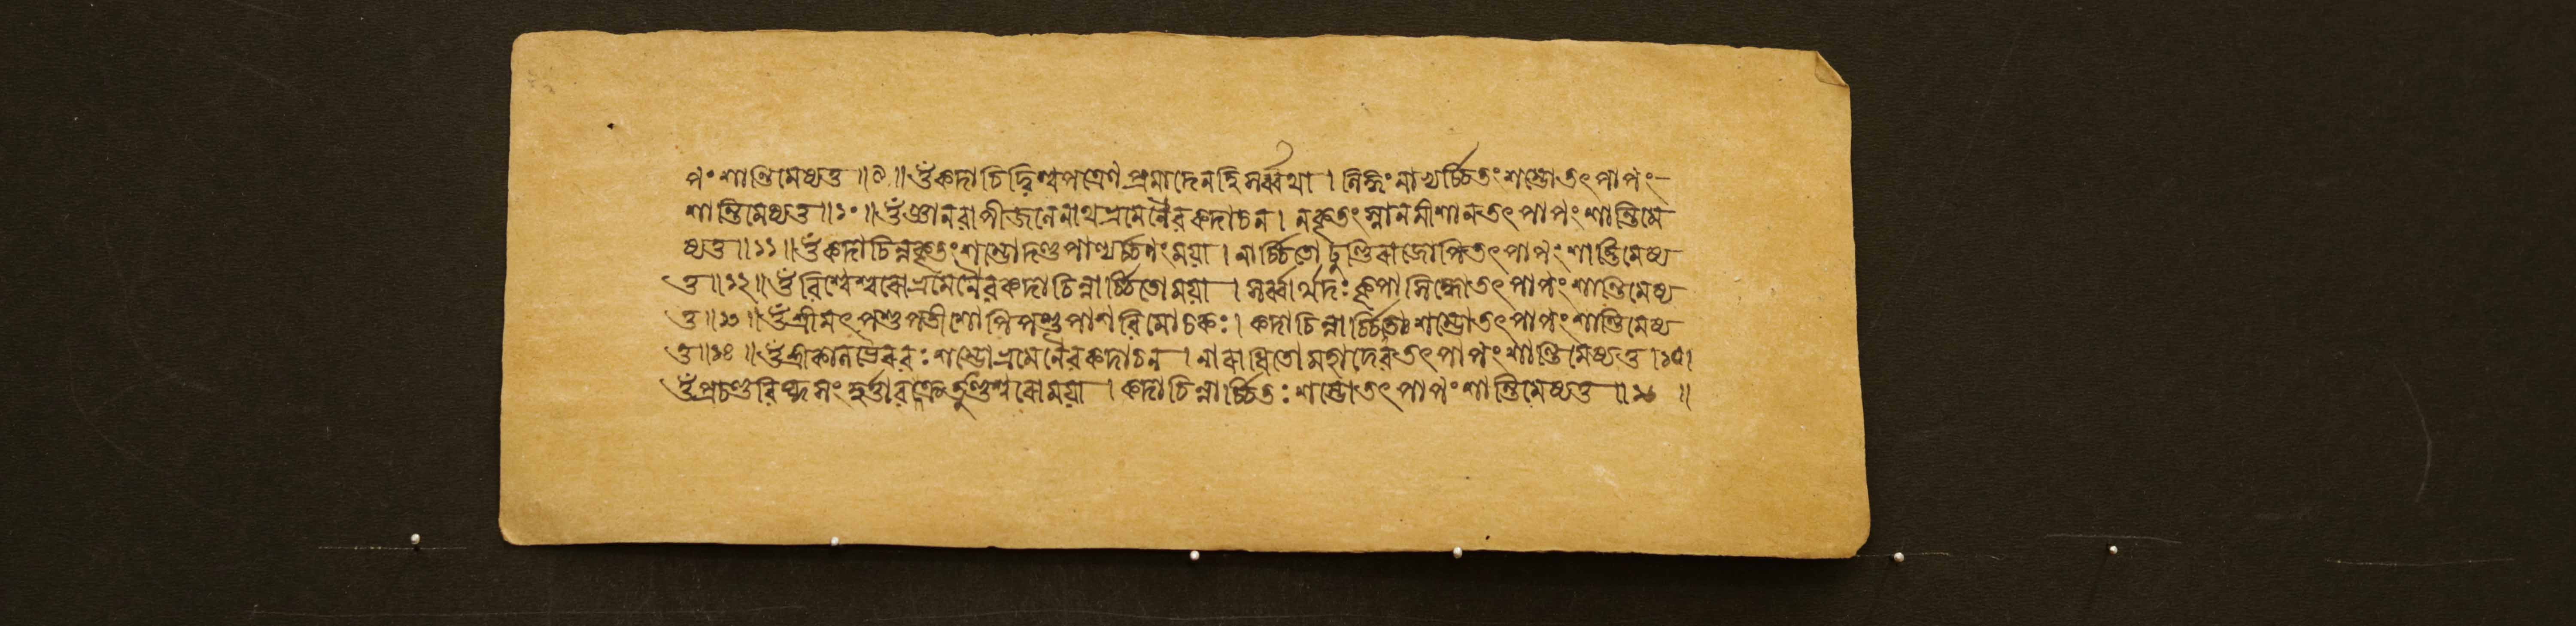 পং শান্তিমেষ্যতু ॥৯॥ ওঁ কদাচিদ্বিশ্বপত্রেণ প্রমাদেনহি সর্ব্বথা । লিঙ্গং নাভ্যর্চ্চিতং শম্ভো তৎ পাপং
শান্তিমেষ্যতু ॥১০॥ ওঁ জ্ঞানবাপীজলে নাথ ভ্রমেনৈব কদাচন । ন কৃতং স্নানমীশান তৎ পাপং শান্তিমে
ষ্যতু ॥১১॥ ওঁ কদাচিন্ন কৃতং শম্ভো দণ্ডপাণ্যর্চ্চনং ময়া । নার্চ্চিতো ঢুণ্ঢিরাজোপি তৎ পাপং শান্তিমেষ্য
তু ॥১২॥ ওঁ বিশ্বেশ্বরো ভ্রমেনৈব কদাচিন্নার্চ্চিতো ময়া । সর্ব্বার্থদঃ কৃপাসিন্ধো তৎ পাপং শান্তিমেষ্য
তু ॥১৩॥ ওঁ শ্রীমৎ পশুপতীশোপি পশুপাশবিমোচকঃ । কদাচিন্নার্চ্চিতঃ শম্ভো তৎ পাপং শান্তিমেষ্য
তু ॥১৪॥ ওঁ শ্রীকালভৈরবঃ শম্ভো ভ্রমেনৈব কদাচন । নারাধিতো মহাদেব তৎ পাপং শান্তিমেষ্যতু ।১৫।
ওঁ প্রচণ্ড ময়া । কদাচিন্নার্চ্চিতঃ শম্ভো তৎ পাপং শান্তিমেষ্যতু ॥১৬॥